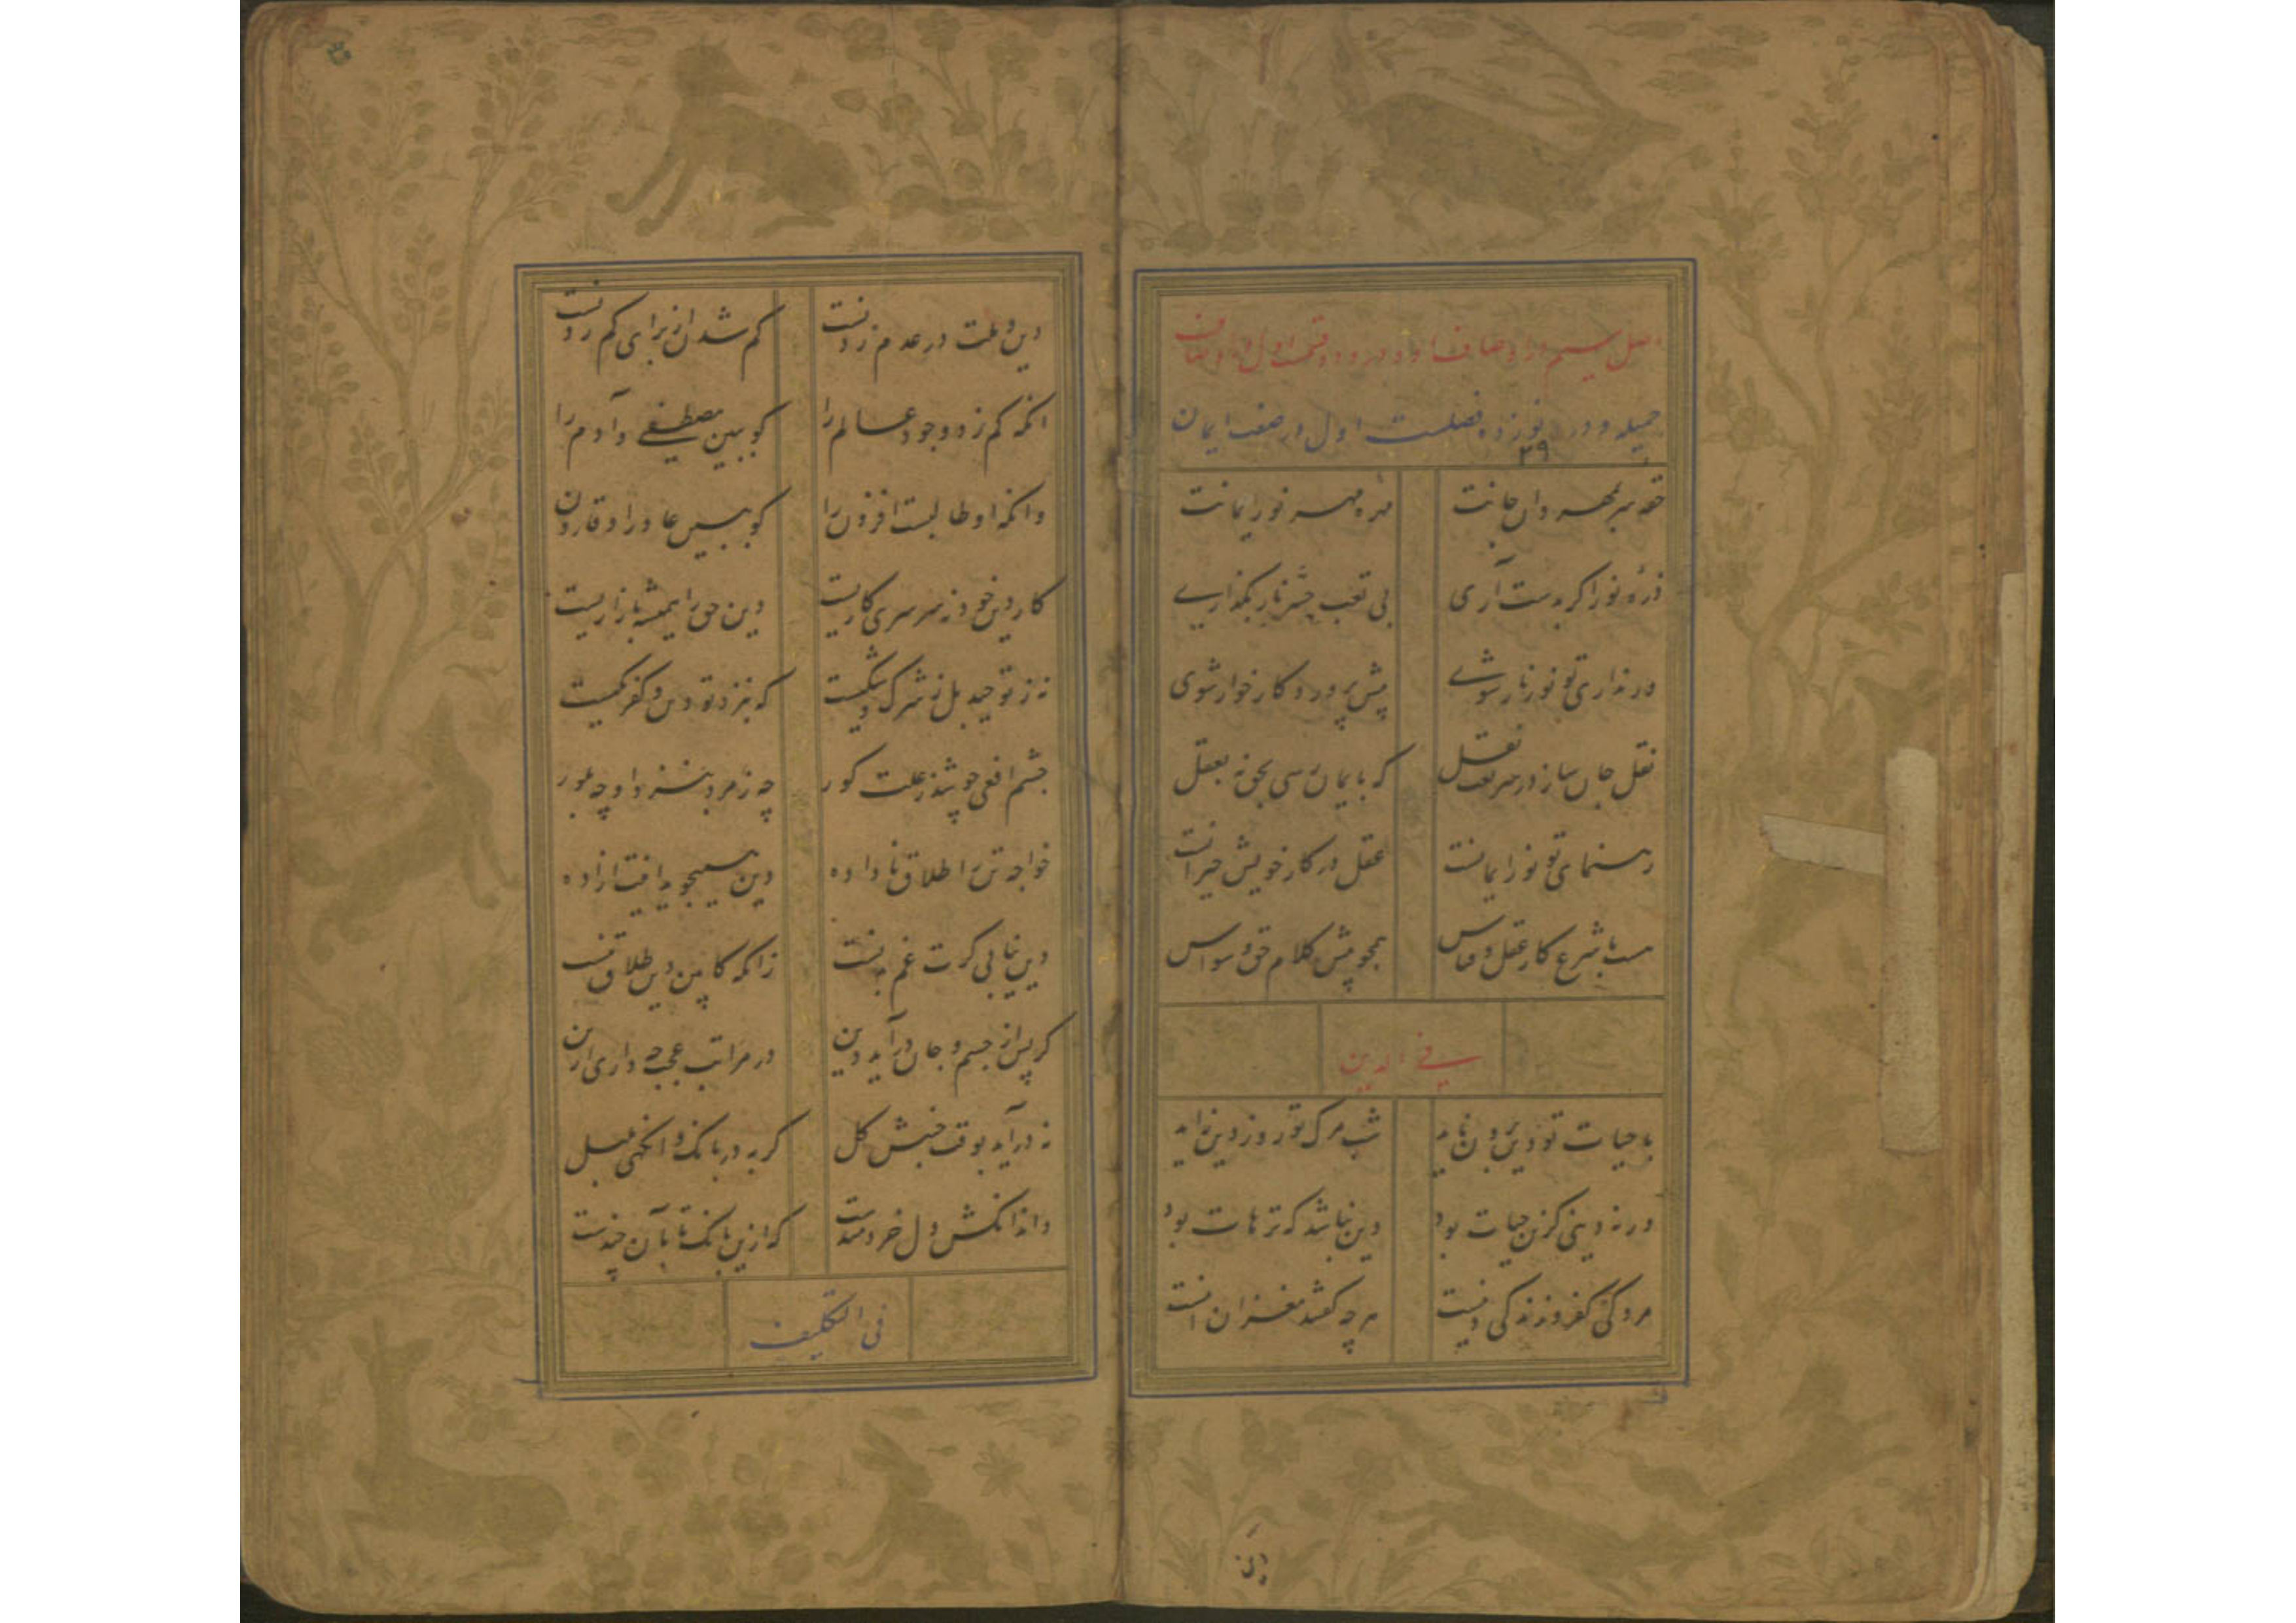 اصل سیم در اوصاف او و درو دو قسم اول در اوصاف
جمیله و درو نوزده فصلست اول در صفت ایمان
۲۹
حقه سر بمهر دان جانت
مهره مهر نور ایمانت
ذره نور اگر بدست آری
بی تعب جسر نار بگذاری
ور نداری تو نور نار شوی
پیش پروردگار خوار شوی
نقل جان ساز در شریعت نقل
که بایمان رسی بحق نه بعقل
رهنمای تو نور ایمانست
عقل در کار خویش حیرانست
هست با شرع کار عقل و قیاس
همچو پیش کلام حق وسواس
فی الدین
با حیات تو دین برون ناید
شب مرگ تو روز دین زاید
ورنه دینی کزین حیات بود
دین نباشد که ترهات بود
مردگی کفر و زندگی دینست
هر چه گفتند مغز آن اینست
دین و ملت در عدم زدنست
کم شدن از برای کم زدنست
انکه کم زد وجود عالم را
کو ببین مصطفی و آدم را
وانکه او طالبست افزون را
کو ببین عاد را و قارون
کار دین خود نه سرسری کاریست
دین حق را همیشه بازاریست
نه ز توحید بل ز شرک و شکیست
که بنزد تو دین و کفر یکیست
چشم افعی چو شد ز علت کور
چه زمرد بنزد او چه بلور
خواجه ترا طلاق نا داده
دین نیابی گرت غم بدنست
زانکه کابین دین طلاق تنست
گر پس از جسم و جان درآید دین
در مراتب عجب مدار این
نه درآید بوقت جنبش گل
گربه در بانگ و انگهی بلبل
داند انکش دل خردمندست
که ازین بانگ تا بآن چندست
فی التکلیف